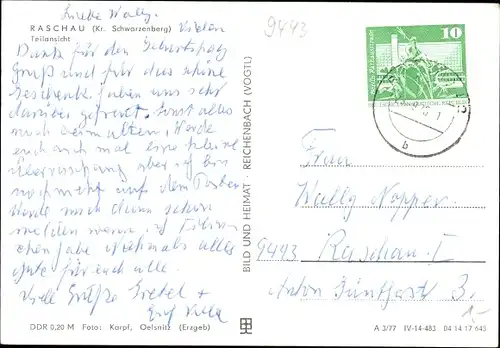 Liebe Wally.
9443
RASCHAU (Kr. Schwarzenberg)
Vielen
Teilansicht
Dank für den Geburtstag
Gruß und für das schöne
Geschenk. haben uns sehr
darüber gefreut. Sonst alles
noch beim alten, Werde
euch auch mal eine kleine
Überraschung aber ich bin
noch nicht auf dem Posten
Werde mich dann schon
melden wenn ich
habe Nochmals alles
Gute für euch alle.
Viele Grüße Gretel +
BILD UND HEIMAT REICHENBACH (VOGTL)
10
Frau
Wally Nopper
9443 Raschau I
Anton Günther 3.
1,-
DDR 0,20 M Foto: Karpf, Oelsnitz (Erzgeb)
A 3/77 IV-14-483 04 14 17 643